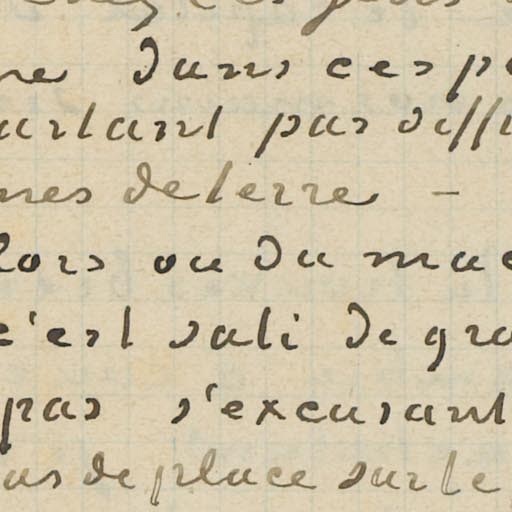 dans ces p
artant pas diffi
mes de terre -
lors ou du mac
c'est sali de gra
pas s'excusant
as de place sur le